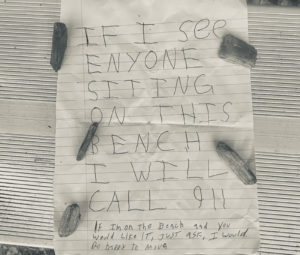 IF I see
ENYONE
SITING
ON THIS
BENCH
I WILL
CALL 911
IF Im on the Beach and you
would Like IT, JUST ASK, I would
be happy to move